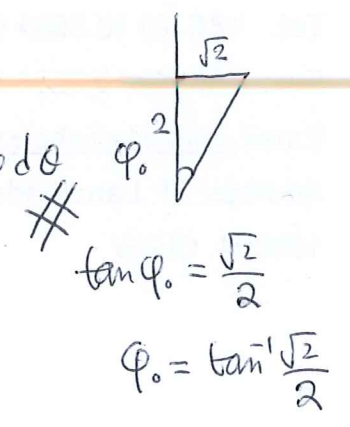 √2
2
dθ φ₀
#
tan φ₀ = √2/2
φ₀ = tan⁻¹ √2/2